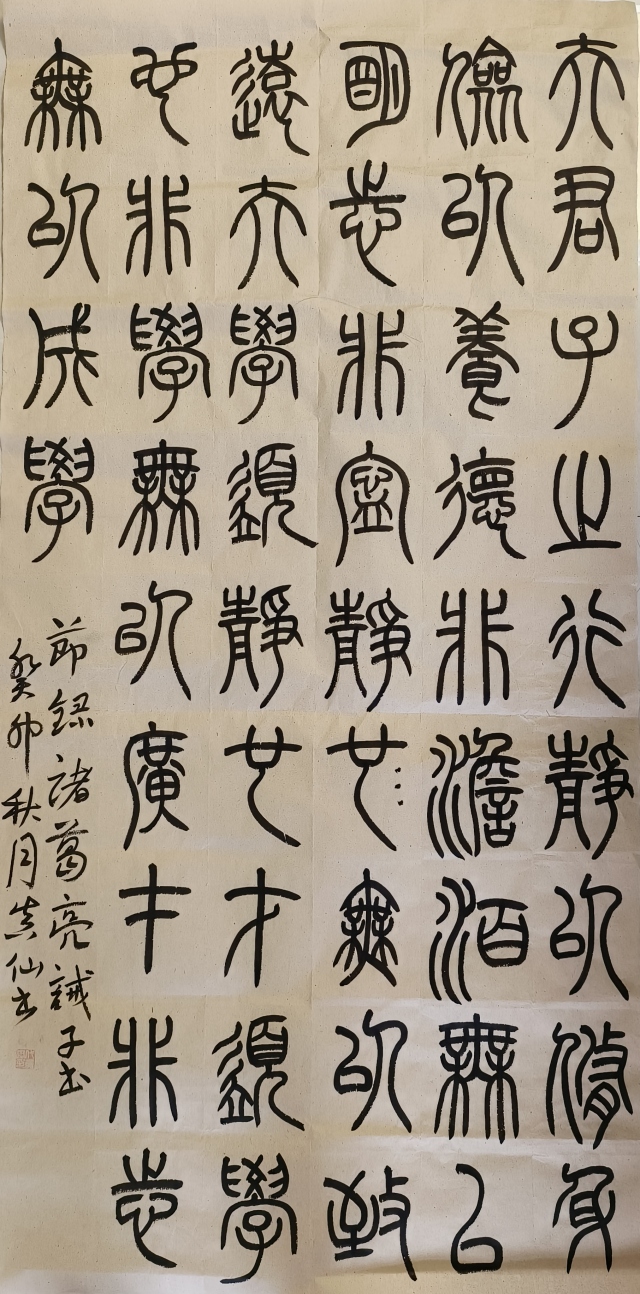 夫君子之行靜以脩身
儉以養德非澹泊無以
明志非寧靜也無以致
遠夫學須靜也才須學
也非學無以廣才非志
無以成學
節錄諸葛亮誡子書
癸卯秋月真仙書